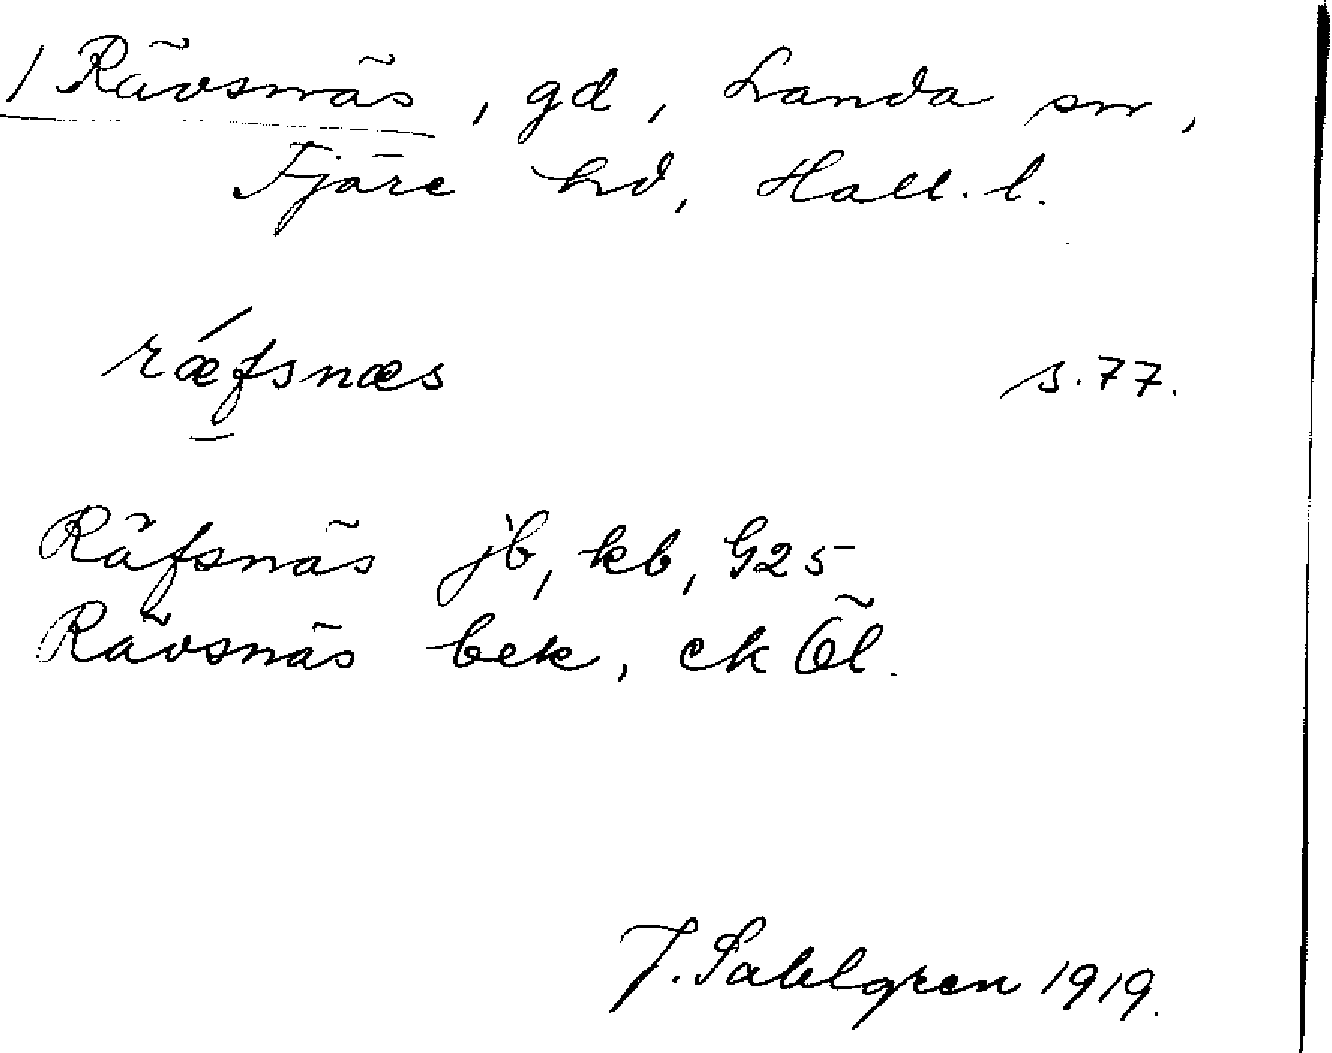 1 Rävsnäs, gd, Landa sn,
Fjäre hd, Hall. l.
rǽfsnæs s. 77.
Räfsnäs jb, kb, G25
Rävsnäs bek, ek Öl.
J. Sahlgren 1919.